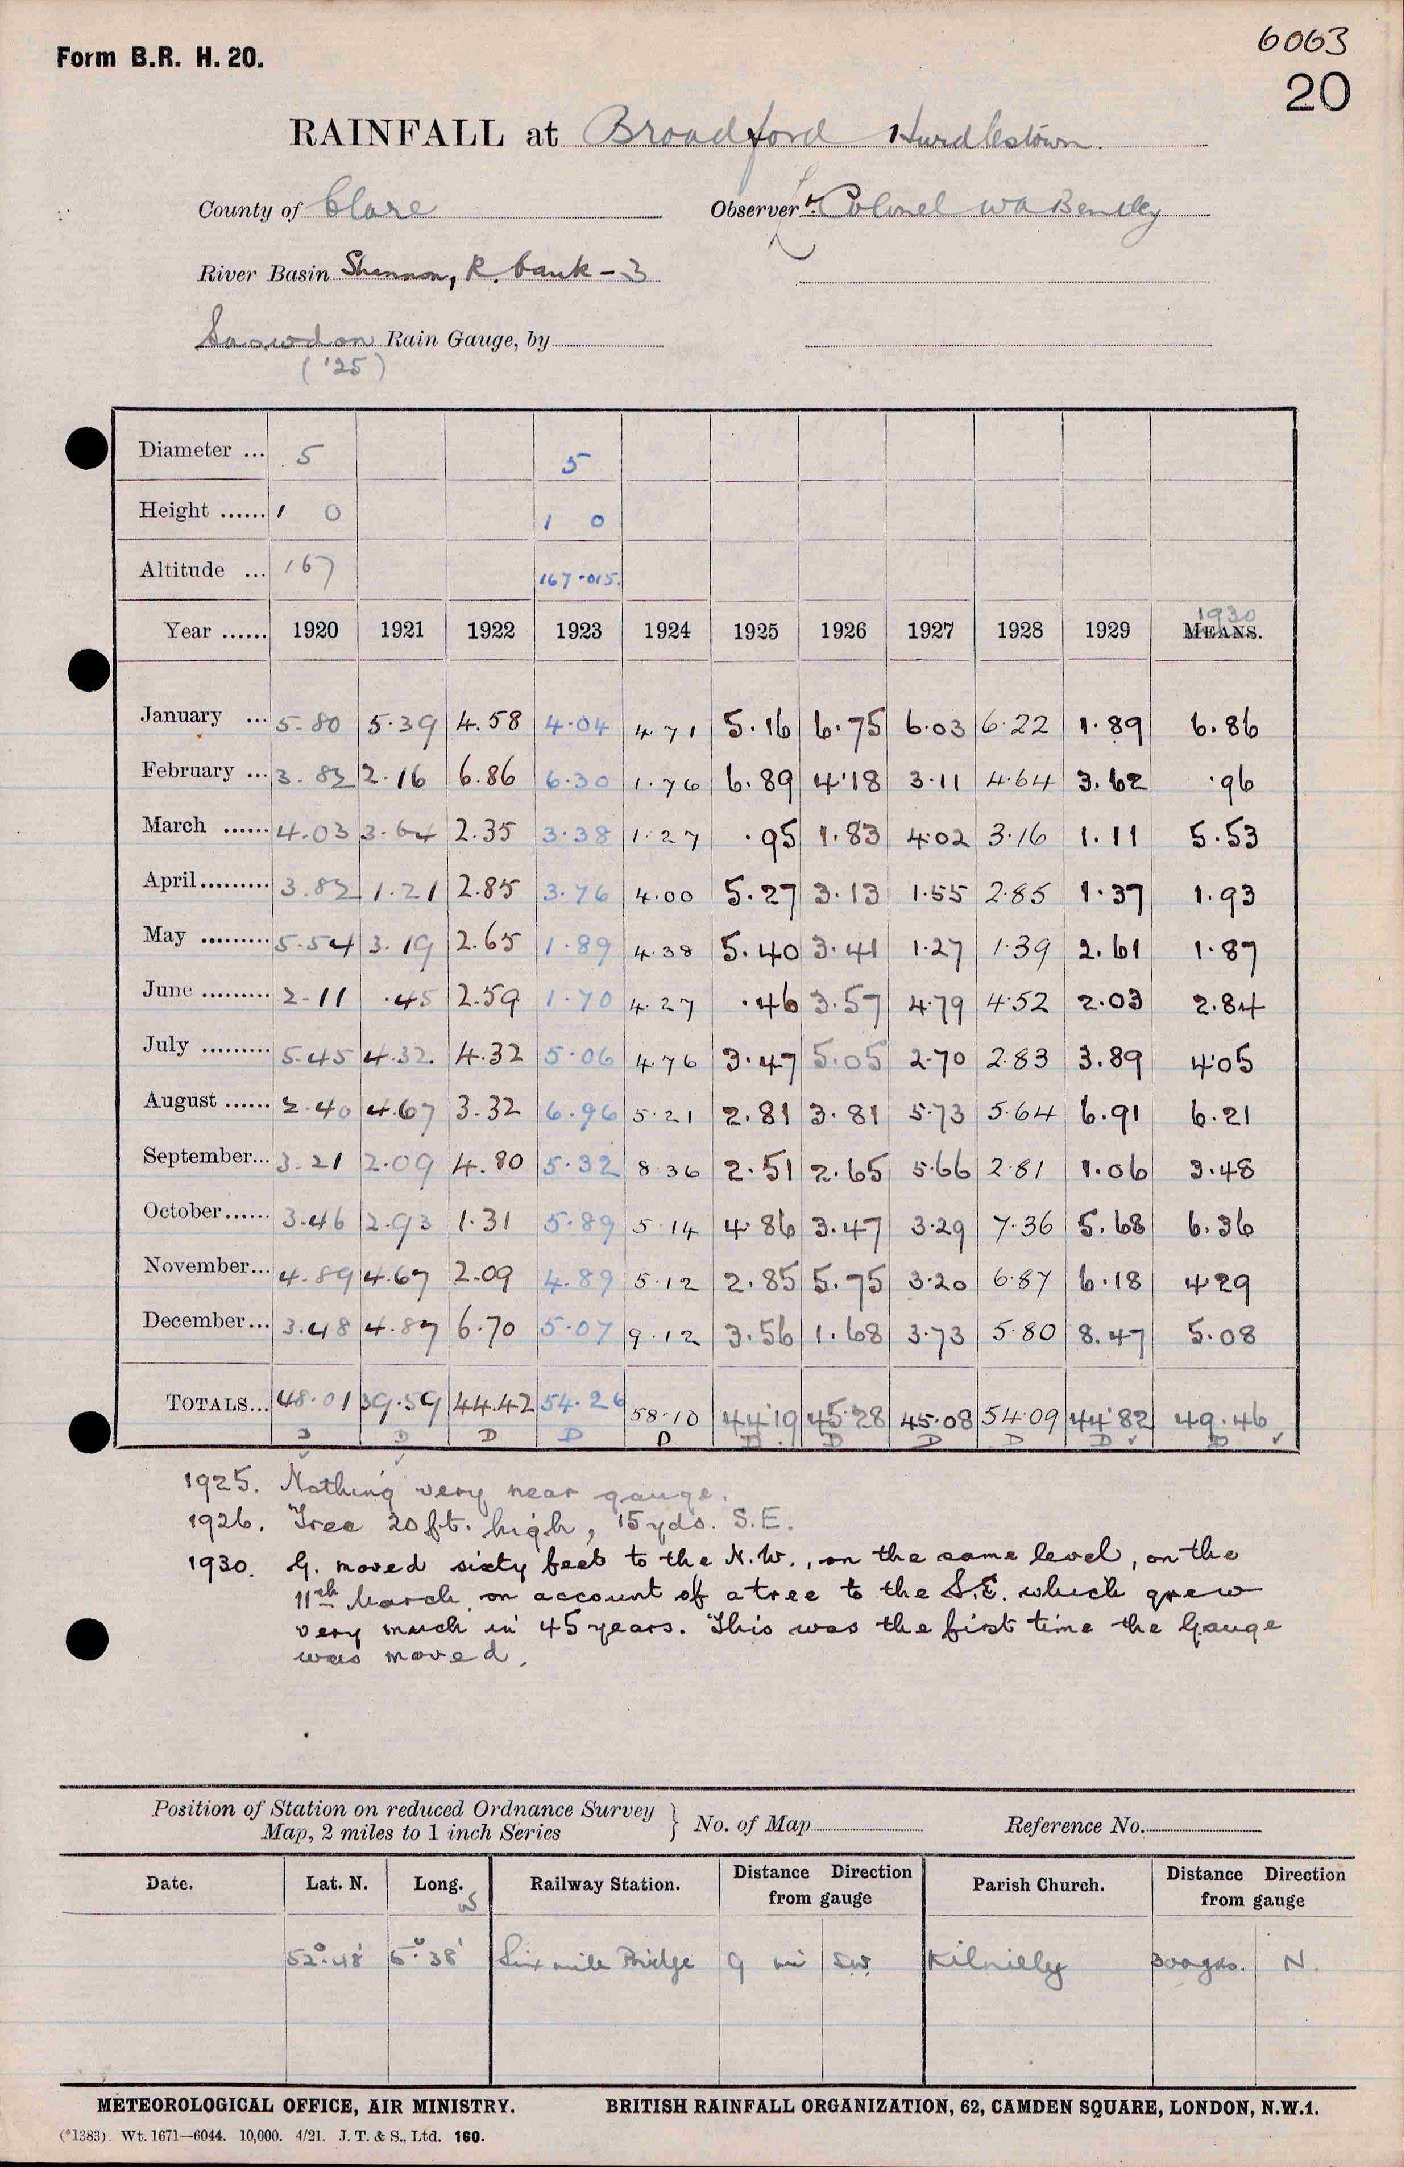 Form B.R. H. 20.
6063
20
RAINFALL at Broadford Hurdlestown.
County of Clare Observer Lt. Colonel W A Bentley
River Basin Shannon, R. bank - 3
Snowdon Rain Gauge, by
('25)
Diameter ... 5 5
Height ...... 1 0 1 0
Altitude ... 167 167.015.
1930
Year ...... 1920 1921 1922 1923 1924 1925 1926 1927 1928 1929 MEANS.
January ... 5.80 5.39 4.58 4.04 4.71 5.16 6.75 6.03 6.22 1.89 6.86
February ... 3.82 2.16 6.86 6.30 1.76 6.89 4.18 3.11 4.64 3.62 .96
March ...... 4.03 3.64 2.35 3.38 1.27 .95 1.83 4.02 3.16 1.11 5.53
April......... 3.82 1.21 2.85 3.76 4.00 5.27 3.13 1.55 2.85 1.37 1.93
May ......... 5.54 3.19 2.65 1.89 4.38 5.40 3.41 1.27 1.39 2.61 1.87
June ......... 2.11 .45 2.59 1.70 4.27 .46 3.57 4.79 4.52 2.03 2.84
July ......... 5.45 4.32. 4.32 5.06 4.76 3.47 5.05 2.70 2.83 3.89 4.05
August ...... 2.40 4.67 3.32 6.96 5.21 2.81 3.81 5.73 5.64 6.91 6.21
September... 3.21 2.09 4.80 5.32 8.36 2.51 2.65 5.66 2.81 1.06 3.48
October...... 3.46 2.93 1.31 5.89 5.14 4.86 3.47 3.29 7.36 5.68 6.36
November... 4.89 4.67 2.09 4.89 5.12 2.85 5.75 3.20 6.87 6.18 4.29
December... 3.48 4.87 6.70 5.07 9.12 3.56 1.68 3.73 5.80 8.47 5.08
TOTALS... 48.01 39.59 44.42 54.26 58.10 44.19 45.28 45.08 54.09 44.82 49.46
D D D D D D D D D D ✓ D ✓
1925. Nothing very near gauge.
1926. Tree 20 ft. high, 15 yds. S.E.
1930. G. moved sixty feet to the N.W., on the same level, on the
11th March, on account of a tree to the S.E. which grew
very much in 45 years. This was the first time the Gauge
was moved.
Position of Station on reduced Ordnance Survey
Map, 2 miles to 1 inch Series } No. of Map Reference No.
Date. Lat. N. Long. W Railway Station. Distance Direction from gauge Parish Church. Distance Direction from gauge
52° 48' 6° 38' Six mile Bridge 9 mi SW. 300 yds. N.
METEOROLOGICAL OFFICE, AIR MINISTRY. BRITISH RAINFALL ORGANIZATION, 62, CAMDEN SQUARE, LONDON, N.W.1.
(*1383). Wt. 1671—6044. 10,000. 4/21. J. T. & S., Ltd. 160.